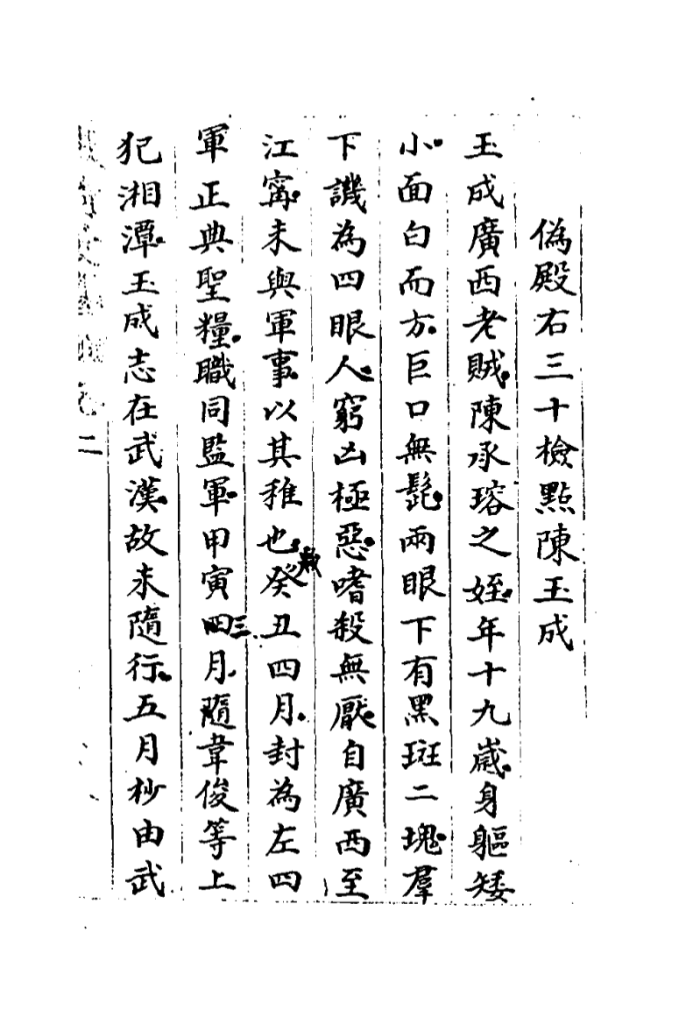 偽殿右三十檢點陳玉成
玉成廣西老賊陳承瑢之姪年十九歲身軀矮
小面白而方巨口無髭兩眼下有黑斑二塊羣
下譏為四眼人窮凶極惡嗜殺無厭自廣西至
江寗未與軍事以其稚也癸丑四月封為左四
軍正典聖糧職同監軍甲寅三月隨韋俊等上
犯湘潭玉成志在武漢故未隨行五月杪由武
二